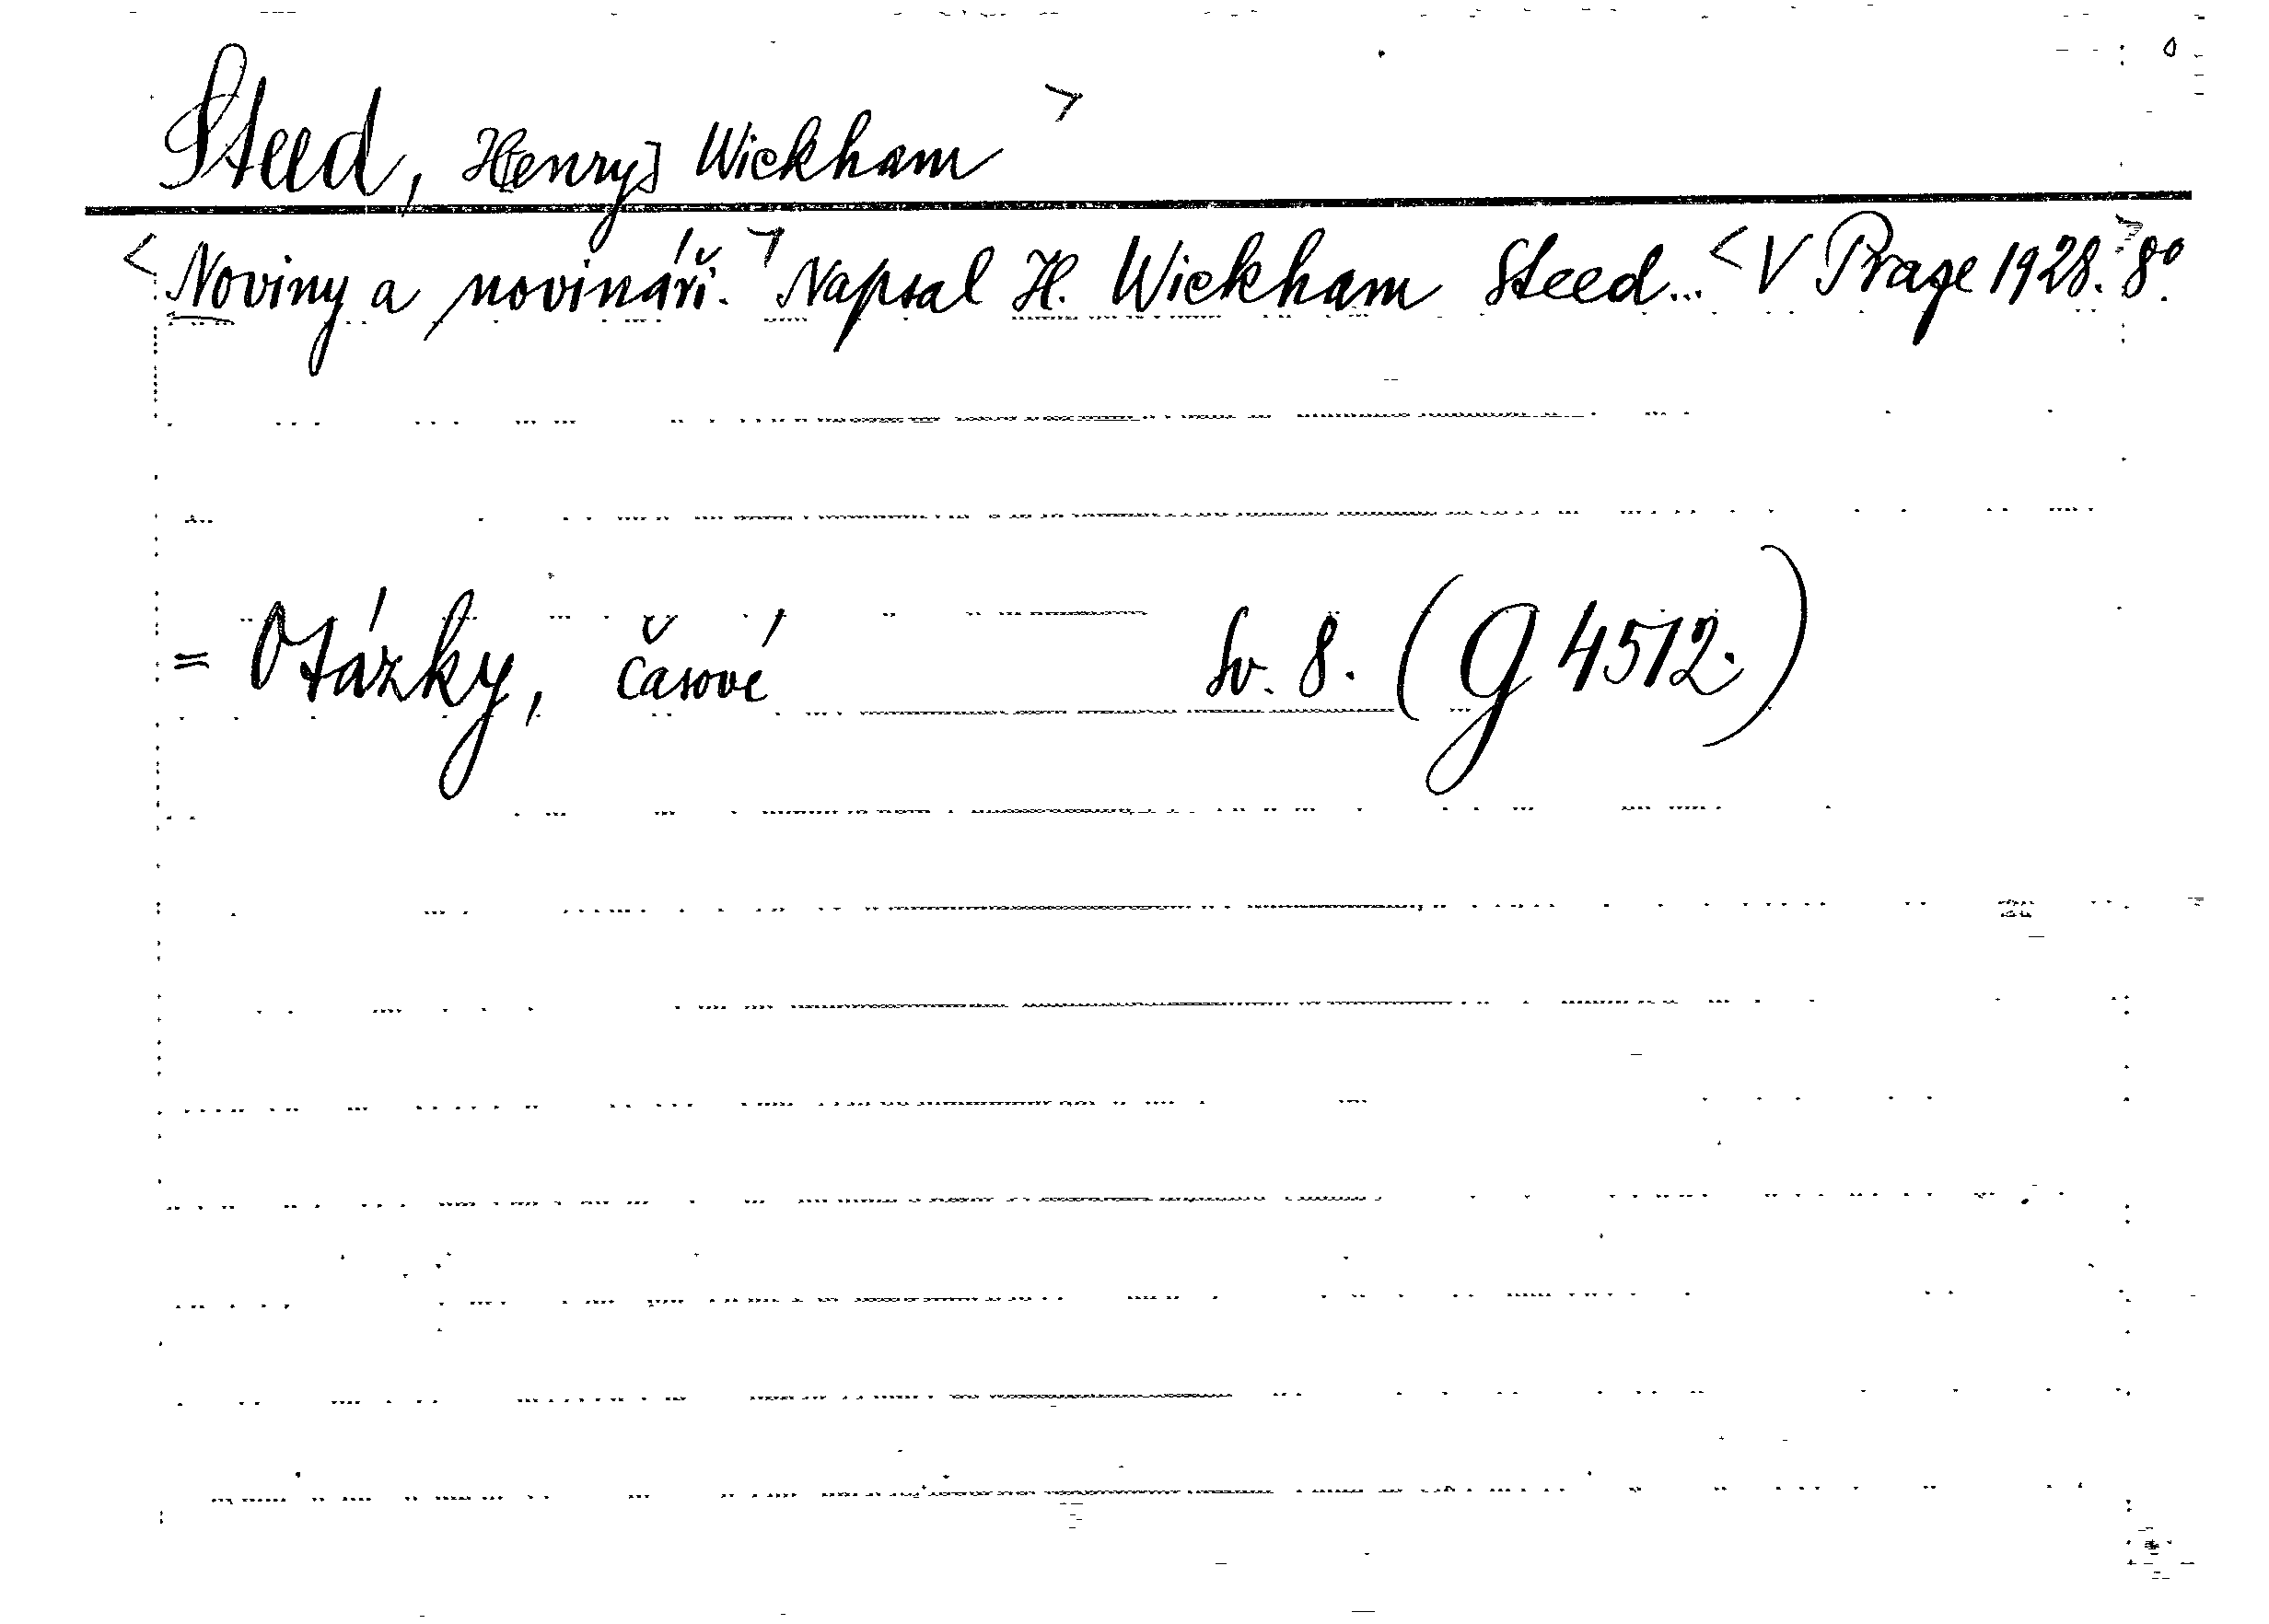 Steed, H[enry] Wickham >
<Noviny a novináři.> Napsal H. Wickham Steed... <V Praze 1928.> 8°.
= Otázky, časové Sv. 8. (G 4512.)